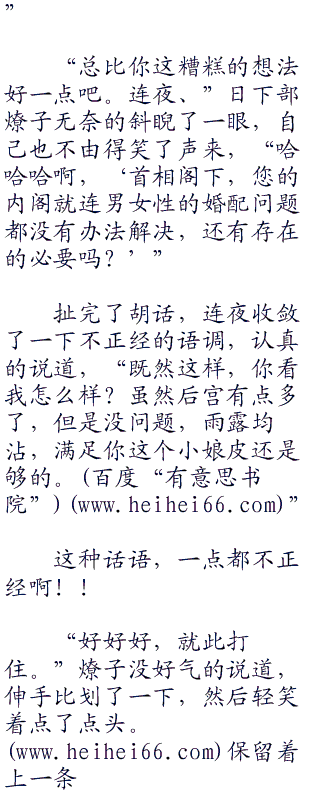 ”
“总比你这糟糕的想法
好一点吧。连夜、”日下部
燎子无奈的斜睨了一眼，自
己也不由得笑了声来，“哈
哈哈啊，‘首相阁下，您的
内阁就连男女性的婚配问题
都没有办法解决，还有存在
的必要吗？’”
扯完了胡话，连夜收敛
了一下不正经的语调，认真
的说道，“既然这样，你看
我怎么样？虽然后宫有点多
了，但是没问题，雨露均
沾，满足你这个小娘皮还是
够的。(百度“有意思书
院”)(www.heihei66.com)”
这种话语，一点都不正
经啊！！
“好好好，就此打
住。”燎子没好气的说道，
伸手比划了一下，然后轻笑
着点了点头。
(www.heihei66.com)保留着
上一条